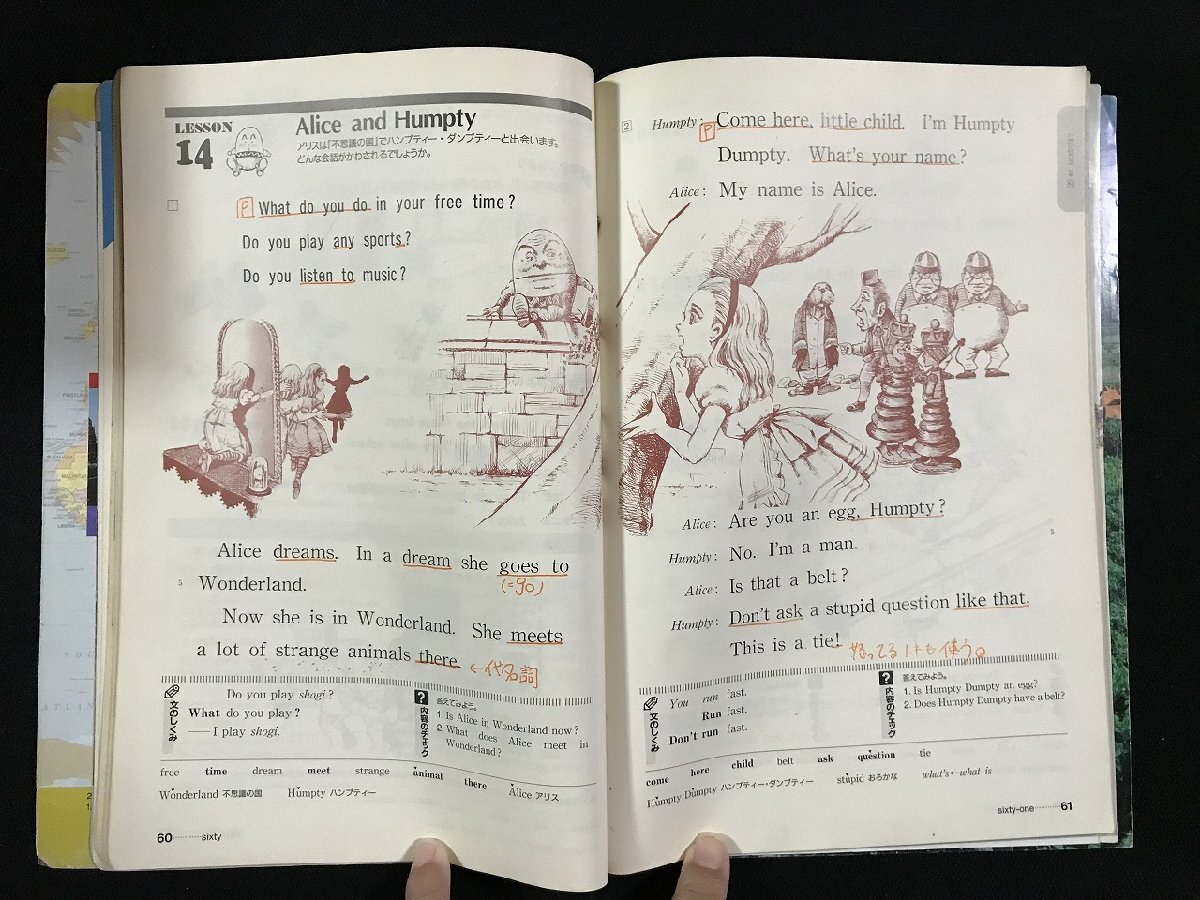 LESSON
14
Alice and Humpty
アリスは「不思議の国」でハンプティー・ダンプティーと出会います。
どんな会話がかわされるでしょうか。
P What do you do in your free time?
Do you play any sports?
Do you listen to music?
Alice dreams. In a dream she goes to
(=go)
5 Wonderland.
Now she is in Wonderland. She meets
a lot of strange animals there
←代名詞
文のしくみ
Do you play shogi?
What do you play?
— I play shogi.
? 内容のチェック
答えてみよう。
1. Is Alice in Wonderland now?
2. What does Alice meet in
Wonderland?
free time dream meet strange animal there
Wonderland 不思議の国 Humpty ハンプティー Alice アリス
60 sixty
2 Humpty: Come here, little child. I'm Humpty
P
Dumpty. What's your name?
Alice: My name is Alice.
Alice: Are you an egg, Humpty?
5
Humpty: No. I'm a man.
Alice: Is that a belt?
Humpty: Don't ask a stupid question like that.
This is a tie!
怒ってる時も使う。
文のしくみ
You run fast.
Run fast.
Don't run fast.
? 内容のチェック
答えてみよう。
1. Is Humpty Dumpty an egg?
2. Does Humpty Dumpty have a belt?
come here child belt ask question tie
Humpty Dumpty ハンプティー・ダンプティー stupid おろかな what's←what is
sixty-one 61